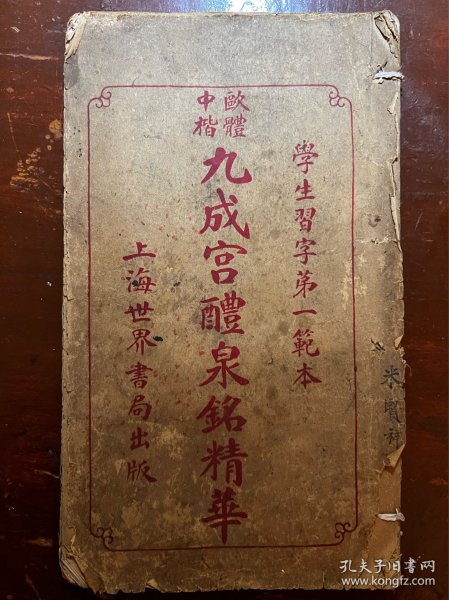 學生習字第一範本
歐體
中楷
九成宮醴泉銘精華
上海世界書局出版
孔夫子旧书网
www.kongfz.com